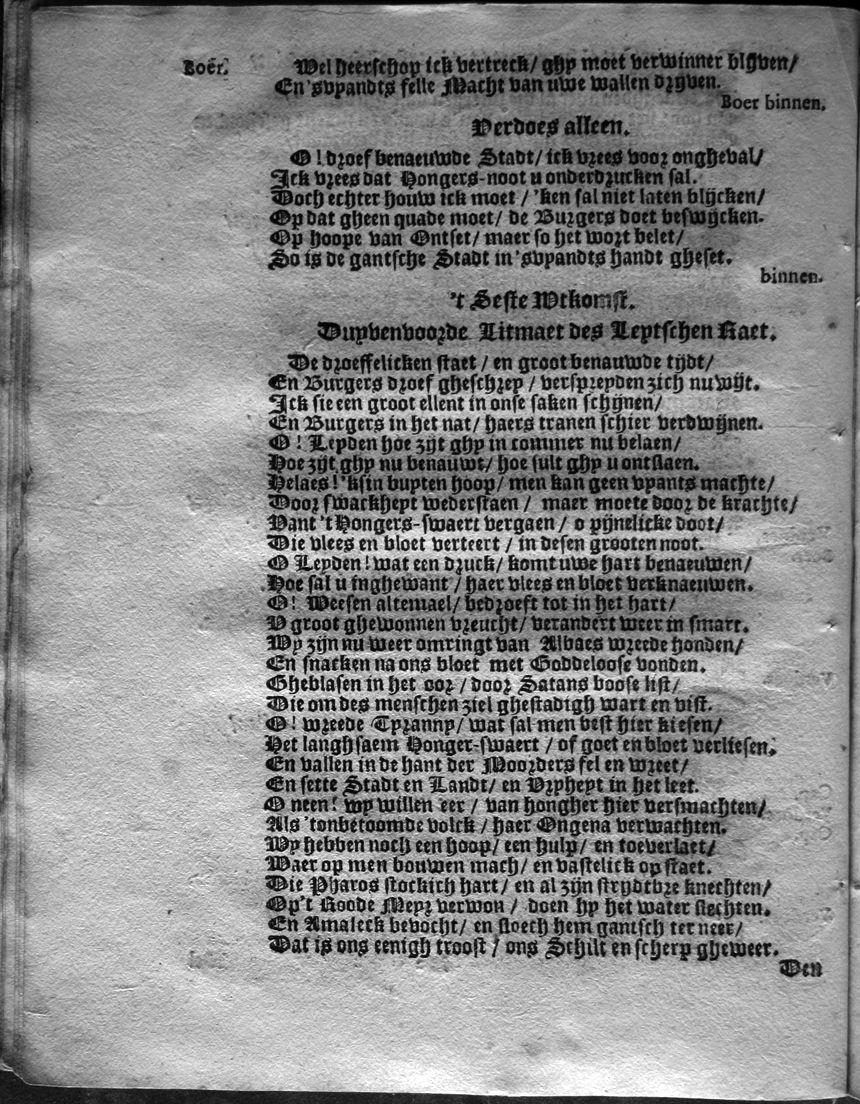 Boer. Wel heerschop ick vertreck/ ghy moet verwinner blijven/
En 'svyandts felle Macht van uwe wallen drijven.
Boer binnen.
Verdoes alleen.
O! droef benaeuwde Stadt/ ick vrees voor ongheval/
Ick vrees dat Hongers-noot u onderdrucken sal.
Doch echter houw ick moet / 'ken sal niet laten blijcken/
Op dat gheen quade moet/ de Burgers doet beswijcken.
Op hoope van Ontset/ maer so het wort belet/
So is de gantsche Stadt in 'svyandts handt gheset.
binnen.
't Seste Wtkomst.
Duyvenvoorde Litmaet des Leytschen Raet.
De droeffelicken staet / en groot benauwde tijdt/
En Burgers droef gheschrey / verspreyden zich nu wijt.
Ick sie een groot ellent in onse saken schijnen/
En Burgers in het nat/ haers tranen schier verdwijnen.
O! Leyden hoe zijt ghy in commer nu belaen/
Hoe zijt ghy nu benauwt/ hoe sult ghy u ontslaen.
Helaes! 'ksin buyten hoop/ men kan geen vyants machte/
Door swackheyt wederstaen / maer moete door de krachte/
Vant 't Hongers-swaert vergaen / o pijnelicke doot/
Die vlees en bloet verteert / in desen grooten noot.
O Leyden! wat een druck/ komt uwe hart benaeuwen/
Hoe sal u inghewant / haer vlees en bloet verknaeuwen.
O! Weesen altemael/ bedroeft tot in het hart/
V groot ghewonnen vreucht/ verandert weer in smart.
Wy zijn nu weer omringt van Albaes wreede honden/
En snacken na ons bloet met Goddeloose vonden.
Gheblasen in het oor / door Satans boose list/
Die om des menschen ziel ghestadigh wart en vist.
O! wreede Tyranny/ wat sal men best hier kiesen/
Het langhsaem Honger-swaert / of goet en bloet verliesen.
En vallen in de hant der Moorders fel en wreet/
En sette Stadt en Landt/ en Vryheyt in het leet.
O neen! wy willen eer / van hongher hier versmachten/
Als 'tonbetoomde volck / haer Ongena verwachten.
Wy hebben noch een hoop/ een hulp/ en toeverlaet/
Waer op men bouwen mach/ en vastelick op staet.
Die Pharos stockich hart/ en al zijn strydtbre knechten/
Op't Roode Meyr verwon / doen hy het water slechten.
En Amaleck bevocht/ en sloech hem gantsch ter neer/
Dat is ons eenigh troost / ons Schilt en scherp gheweer.
Den